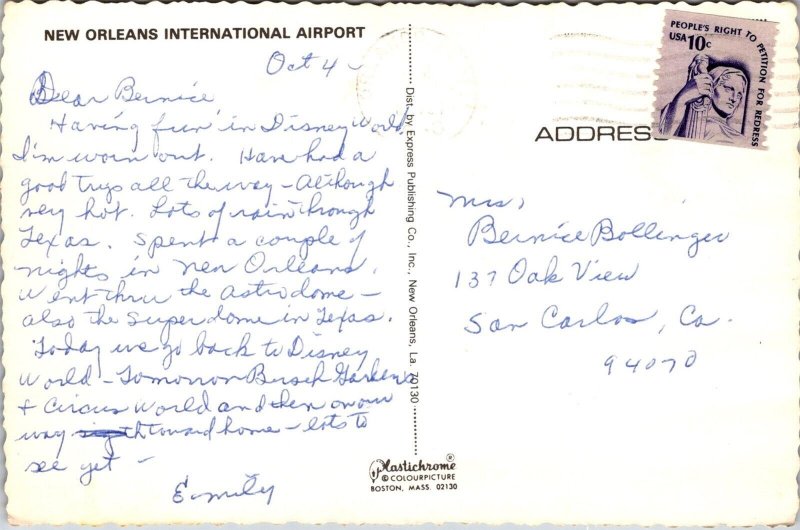 NEW ORLEANS INTERNATIONAL AIRPORT
Oct 4 -
Dear Bernice
Having fun in Disney World,
I'm worn out. Have had a
good trip all the way - Although
very hot. Lots of rain through
Texas. Spent a couple of
nights in New Orleans.
Went thru the Astrodome -
also the Superdome in Texas.
Today we go back to Disney
World - Tomorrow Busch Gardens
+ Circus World and then on our
way toward home - lots to
see yet -
Emily
Dist. by Express Publishing Co., Inc., New Orleans, La. 70130
PEOPLE'S RIGHT TO PETITION FOR REDRESS
USA 10c
ADDRESS
Mrs.
Bernice Bollinger
137 Oak View
San Carlos, Ca.
94070
Plastichrome®
© COLOURPICTURE
BOSTON, MASS. 02130